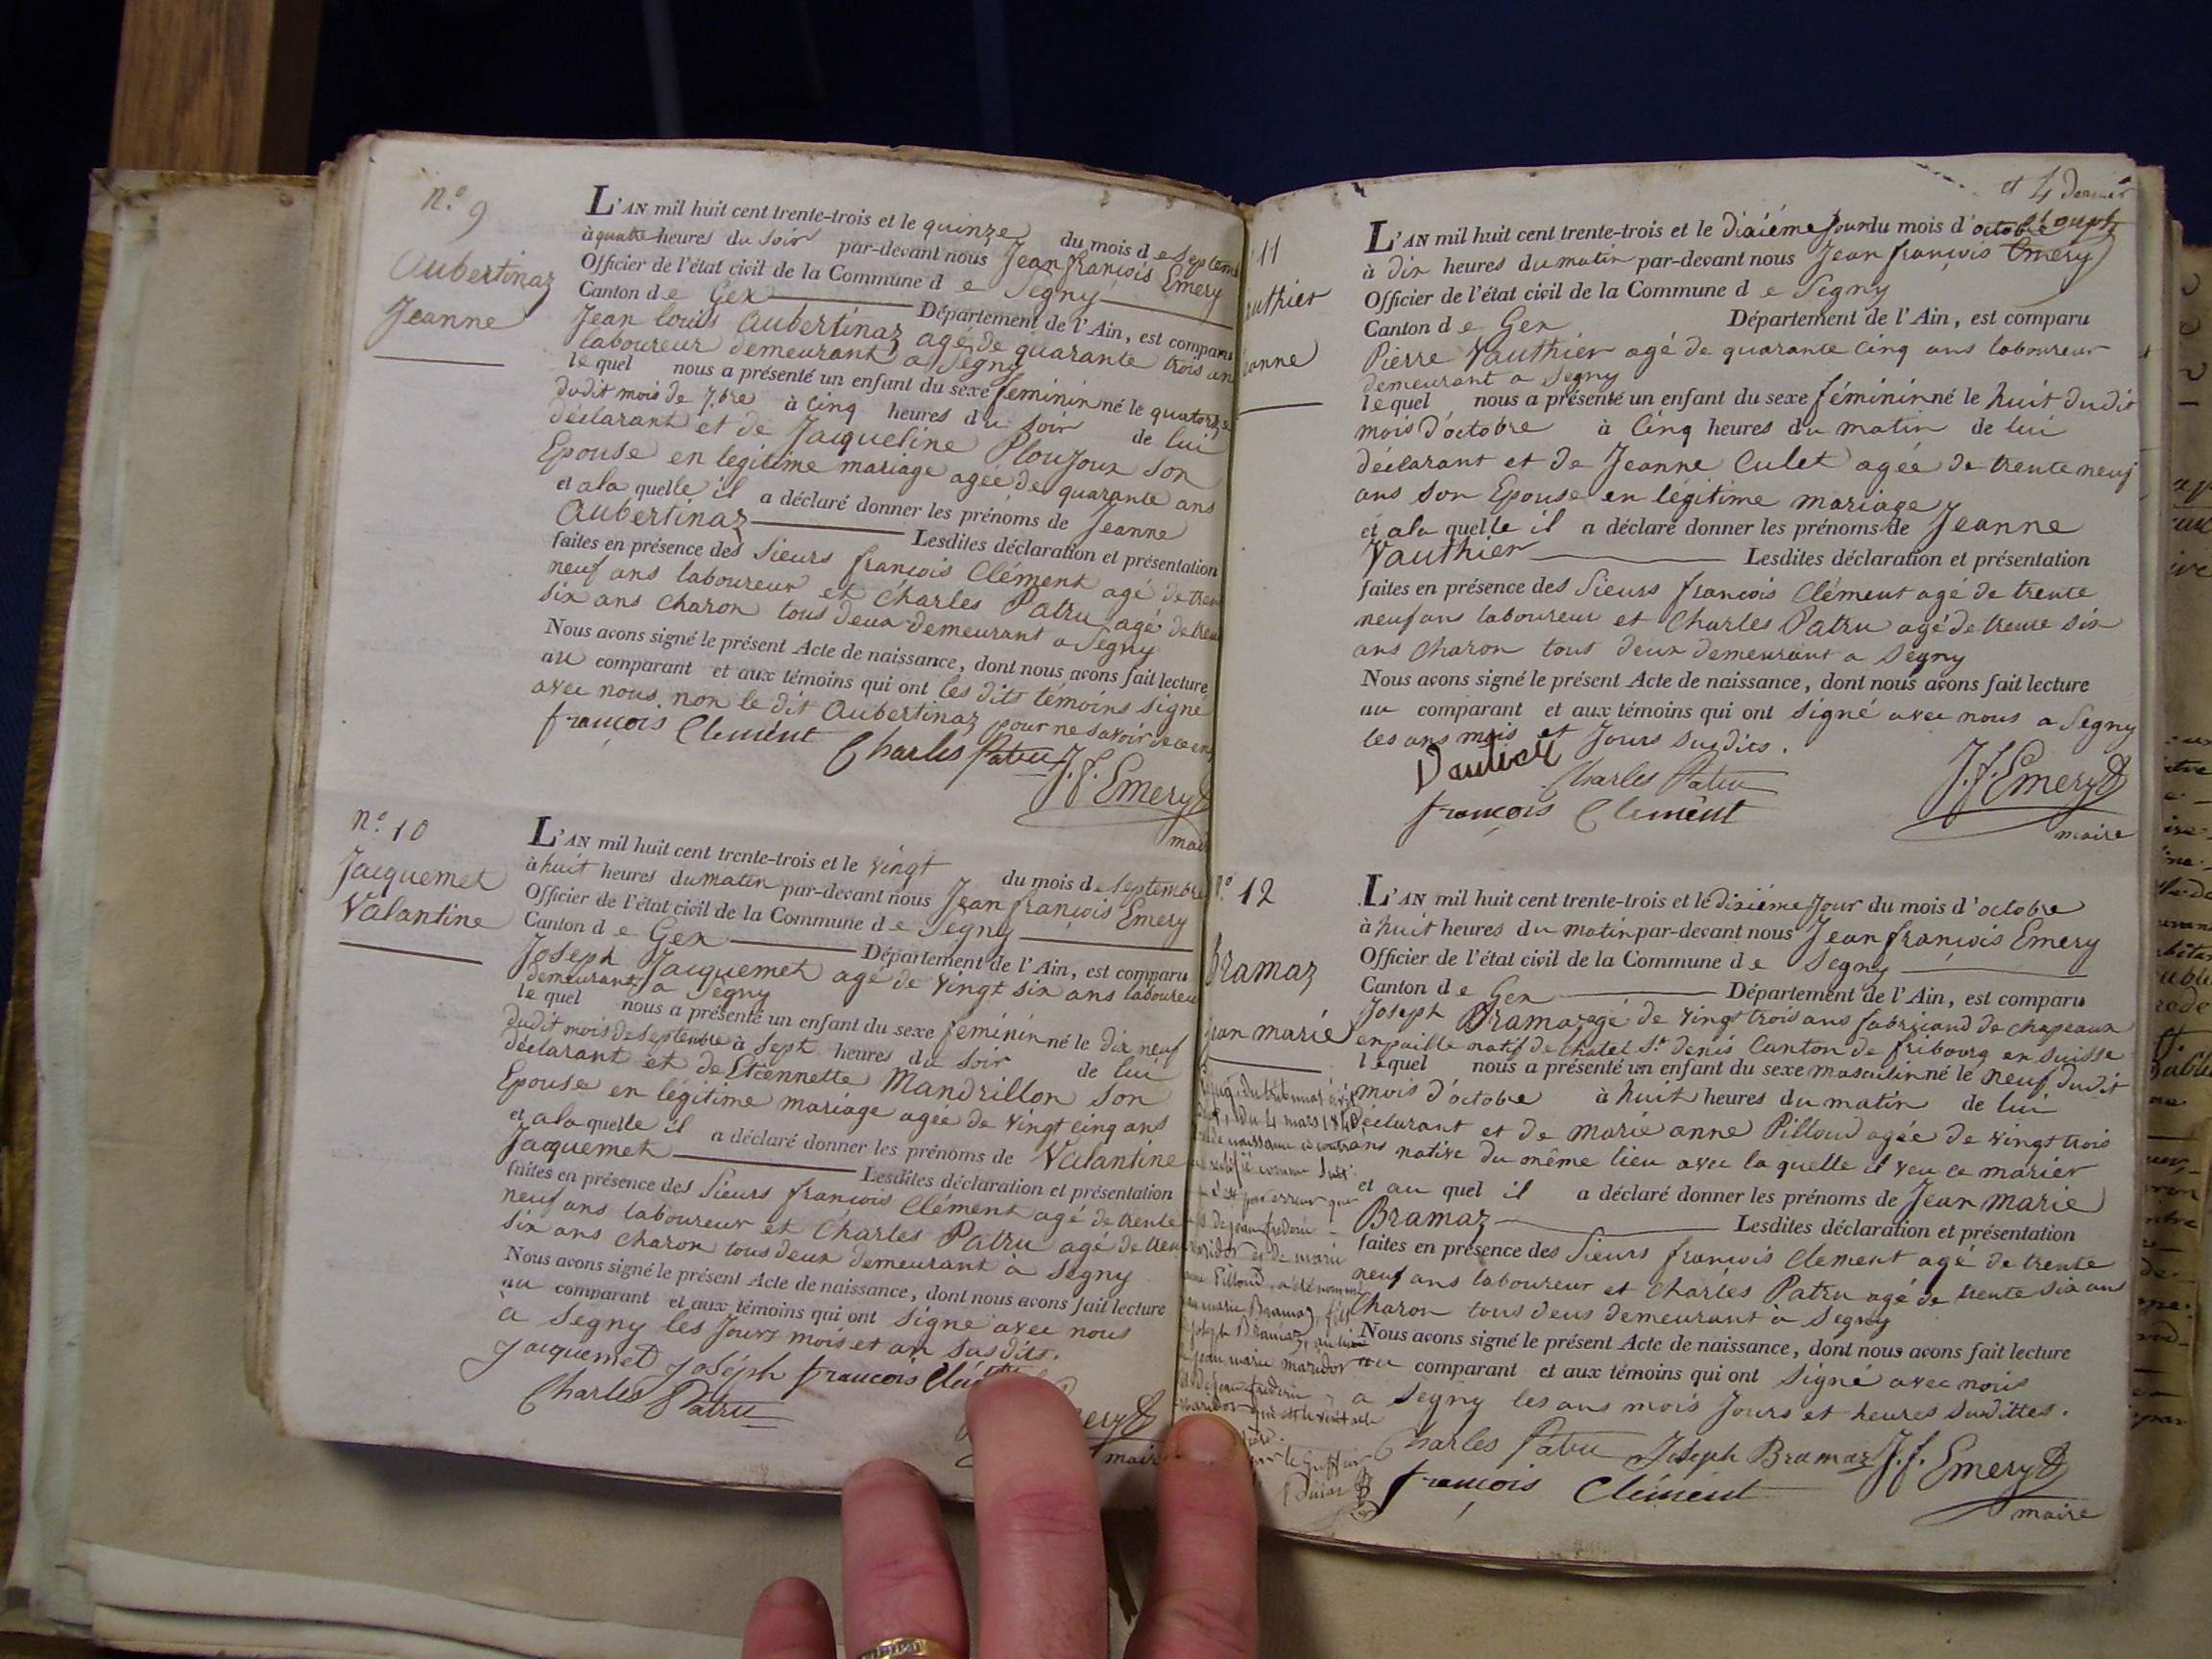 n.° 9
Aubertinaz
Jeanne
L'AN mil huit cent trente-trois et le quinze du mois de Septem
à quatre heures du Soir par-devant nous Jean françois Emery
Officier de l'état civil de la Commune de Segny
Canton de Gex Département de l'Ain, est comparu
Jean louis Aubertinaz agé de quarante trois an
laboureur demeurant a Segny
le quel nous a présenté un enfant du sexe feminin né le quatorze
dudit mois de 7.bre à Cinq heures du Soir de lui
déclarant et de Jacqueline Ploujoux Son
Epouse en légitime mariage agée de quarante ans
et a la quelle il a déclaré donner les prénoms de Jeanne
Aubertinaz Lesdites déclaration et présentation
faites en présence des Sieurs françois Clément agé de tren
neuf ans laboureur et Charles Patru agé de tren
Six ans Charon tous deux demeurant a Segny
Nous avons signé le présent Acte de naissance, dont nous avons fait lecture
au comparant et aux témoins qui ont les dits témoins signé
avec nous, non le dit Aubertinaz pour ne savoir de ce en
françois Clement Charles Patru J.f. Emery
mai
n.° 10
Jacquemet
Valantine
L'AN mil huit cent trente-trois et le Vingt du mois de Septembre
à huit heures du matin par-devant nous Jean françois Emery
Officier de l'état civil de la Commune de Segny
Canton de Gex Département de l'Ain, est comparu
Joseph Jacquemet agé de Vingt Six ans laboureu
demeurant a Segny
le quel nous a présenté un enfant du sexe feminin né le dix neuf
dudit mois de Septembre à Sept heures du Soir de lui
déclarant et de Etiennette Mandrillon Son
Epouse en légitime mariage agée de Vingt Cinq ans
et a la quelle il a déclaré donner les prénoms de Valantine
Jacquemet Lesdites déclaration et présentation
faites en présence des Sieurs françois Clément agé de trente
neuf ans laboureur et Charles Patru agé de tren
Six ans Charon tous deux demeurant a Segny
Nous avons signé le présent Acte de naissance, dont nous avons fait lecture
au comparant et aux témoins qui ont Signé avec nous
a Segny les Jours mois et an Susdits.
Jacquemet Joséph françois Clé
Charles Patru
mair
et 4 dernier
11
authier
anne
L'AN mil huit cent trente-trois et le Dixiéme Jour du mois d'octobre
à Dix heures du matin par-devant nous Jean françois Emery
Officier de l'état civil de la Commune de Segny
Canton de Gex Département de l'Ain, est comparu
Pierre Vauthier agé de quarante Cinq ans laboureur
demeurant a Segny
le quel nous a présenté un enfant du sexe féminin né le huit dudit
mois d'octobre à Cinq heures du matin de lui
déclarant et de Jeanne Culet agée de trente neuf
ans Son Epouse en légitime mariage
et a la quelle il a déclaré donner les prénoms de Jeanne
Vauthier Lesdites déclaration et présentation
faites en présence des Sieurs françois Clément agé de trente
neuf ans laboureur et Charles Patru agé de trente Six
ans Charon tous deux demeurant a Segny
Nous avons signé le présent Acte de naissance, dont nous avons fait lecture
au comparant et aux témoins qui ont Signé avec nous a Segny
les ans mois et Jours Susdits.
Charles Patru J.f. Emery
françois Clement
maire
n° 12
Bramaz
Jean marie
L'AN mil huit cent trente-trois et le dixiéme Jour du mois d'octobre
à huit heures du matin par-devant nous Jean françois Emery
Officier de l'état civil de la Commune de Segny
Canton de Gex Département de l'Ain, est comparu
Joseph Bramaz agé de Vingt trois ans fabricand de chapeaux
en paille natif de Chatel St. denis Canton de fribourg en Suisse
lequel nous a présenté un enfant du sexe masculin né le neuf dudit
mois d'octobre à huit heures du matin de lui
déclarant et de marie anne Pilloud agée de Vingt trois
ans native du même lieu avec la quelle il veu ce marier
et au quel il a déclaré donner les prénoms de Jean Marie
Bramaz Lesdites déclaration et présentation
faites en présence des Sieurs françois Clement agé de trente
neuf ans laboureur et Charles Patru agé de trente Six ans
Charon tous deux demeurant a Segny
Nous avons signé le présent Acte de naissance, dont nous avons fait lecture
au comparant et aux témoins qui ont Signé avec nous
a Segny les ans mois Jours et heures Susdittes.
du 4 mars 18
par erreur que
de jean frederic
maridor et de marie
anne Pilloud, a été nommé
jean marie Bramaz, fils
joseph Bramaz, au lieu
jean marie maridor
de jean frederic
maridor
Charles Patru Joseph Bramaz J.f. Emery
françois Clément
maire